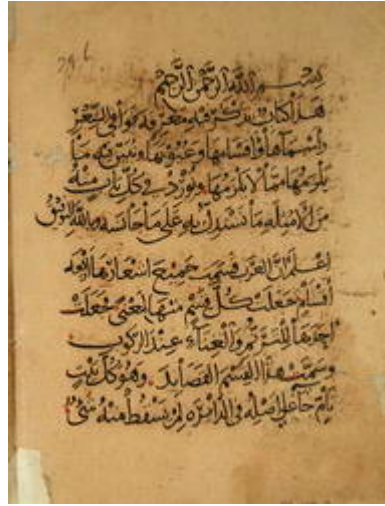 بسم الله الرحمن الرحيم
هذا كتاب نذكر فيه معرفة قوافي الشعر
واسمآها واقسامها وعيوبها ونبين فيه ما
يلزمها مما لا يلزمها ونورد في كل باب منه
من الامثله ما نستدل به على ما جانسه وبالله التوفيق
اعلم ان العرب قسمت جميع اشعارها اربعه
اقسام جعلت كل قسم منها لمعنى فجعلت
احدها للترنم والغناء عند الركوب
وسمت هذا القسم القصايد وهو كل بيت
تام جآ على اصله في الدايره لم يسقط منه شي